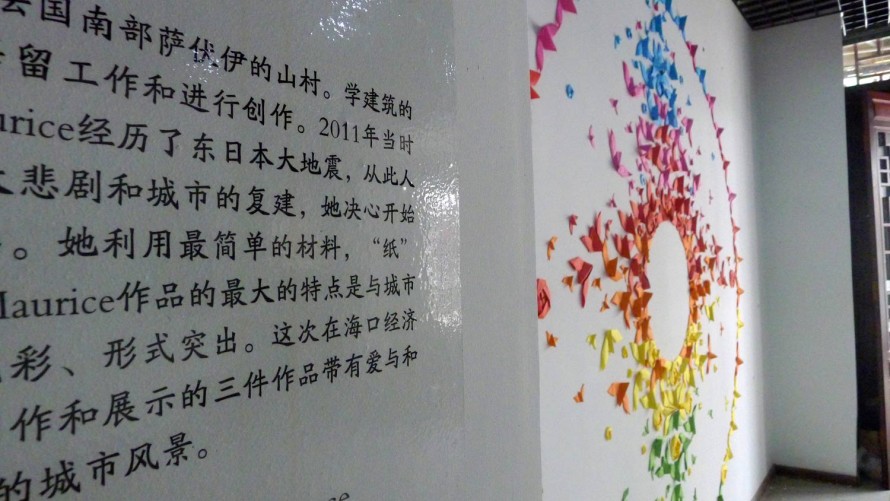 国南部萨伏伊的山村。学建筑的
留工作和进行创作。2011年当时
urice经历了东日本大地震，从此人
悲剧和城市的复建，她决心开始
。她利用最简单的材料，“纸”
Maurice作品的最大的特点是与城市
彩、形式突出。这次在海口经济
作和展示的三件作品带有爱与和
的城市风景。